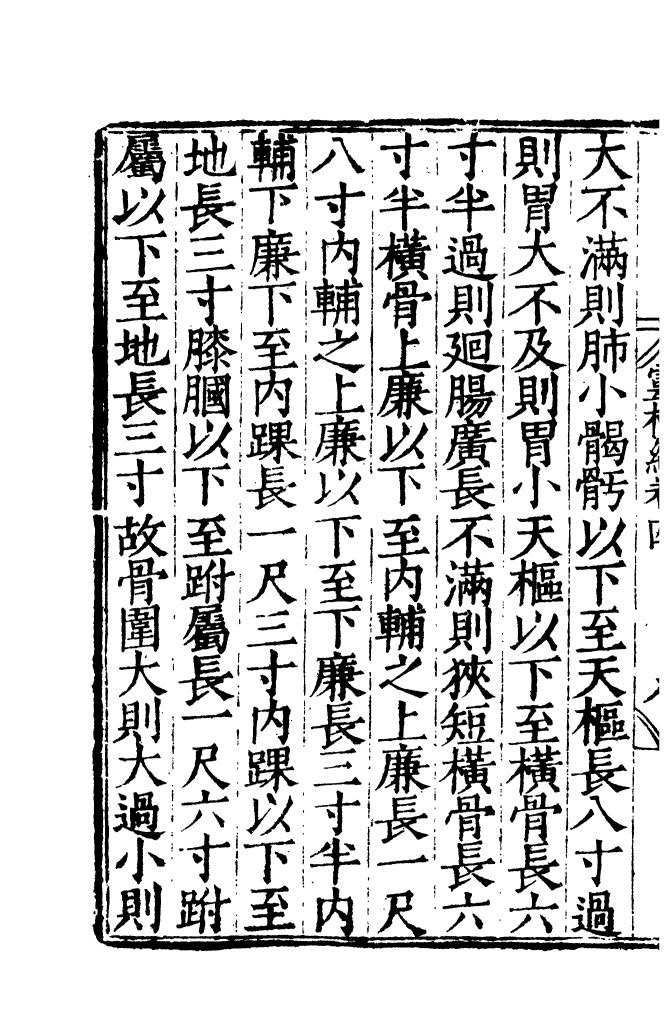 大不滿則肺小𩩲骬以下至天樞長八寸過
則胃大不及則胃小天樞以下至橫骨長六
寸半過則廻腸廣長不滿則狹短橫骨長六
寸半橫骨上廉以下至內輔之上廉長一尺
八寸內輔之上廉以下至下廉長三寸半內
輔下廉下至內踝長一尺三寸內踝以下至
地長三寸膝膕以下至跗屬長一尺六寸跗
屬以下至地長三寸故骨圍大則大過小則